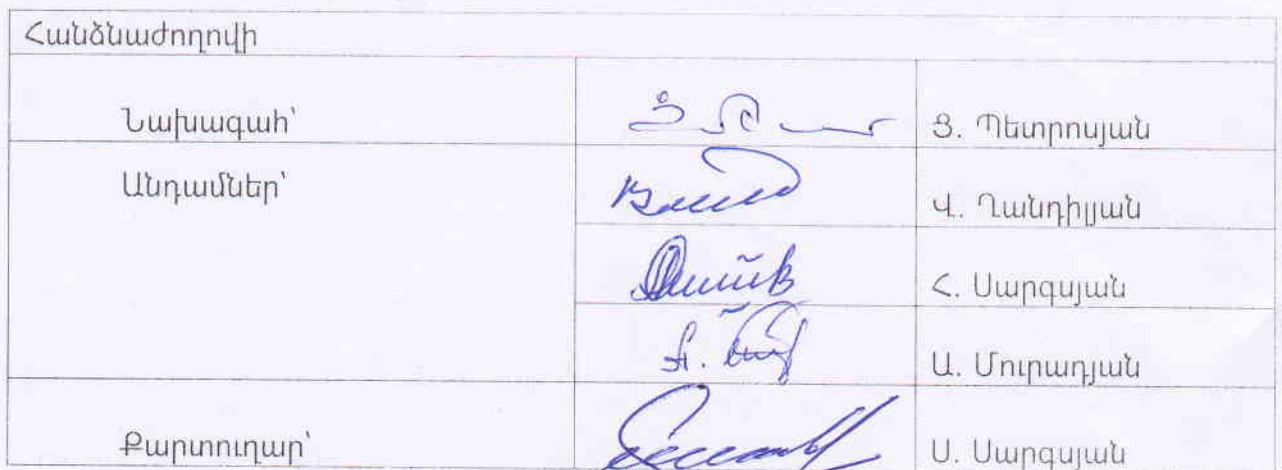 Հանձնաժողովի
Նախագահ՝ Ց. Պետրոսյան
Անդամներ՝ Վ. Ղանդիլյան
Հ. Սարգսյան
Ա. Մուրադյան
Քարտուղար՝ Ս. Սարգսյան